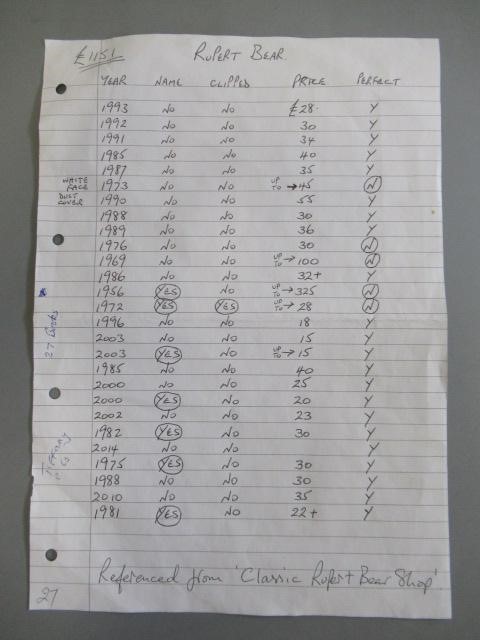 £1151 RUPERT BEAR.
YEAR NAME CLIPPED PRICE PERFECT
1993 NO NO £28. Y
1992 NO NO 30 Y
1991 NO NO 34 Y
1985 NO NO 40 Y
1987 NO NO 35 Y
WHITE FACE 1973 NO NO UP TO → 45 N
DUST COVER 1990 NO NO 55 Y
1988 NO NO 30 Y
1989 NO NO 36 Y
1976 NO NO 30 N
1969 NO NO UP TO → 100 N
1986 NO NO 32+ Y
1956 YES NO UP TO → 325 N
1972 YES YES UP TO → 28 N
1996 NO NO 18 Y
2003 NO NO 15 Y
2003 YES NO UP TO → 15 Y
1985 NO NO 40 Y
2000 NO NO 25 Y
2000 YES NO 20 Y
2002 NO NO 23 Y
1982 YES NO 30 Y
2014 NO NO Y
1975 YES NO 30 Y
1988 NO NO 30 Y
2010 NO NO 35 Y
1981 YES NO 22+ Y
Referenced from 'Classic Rupert Bear Shop'
27
27 books